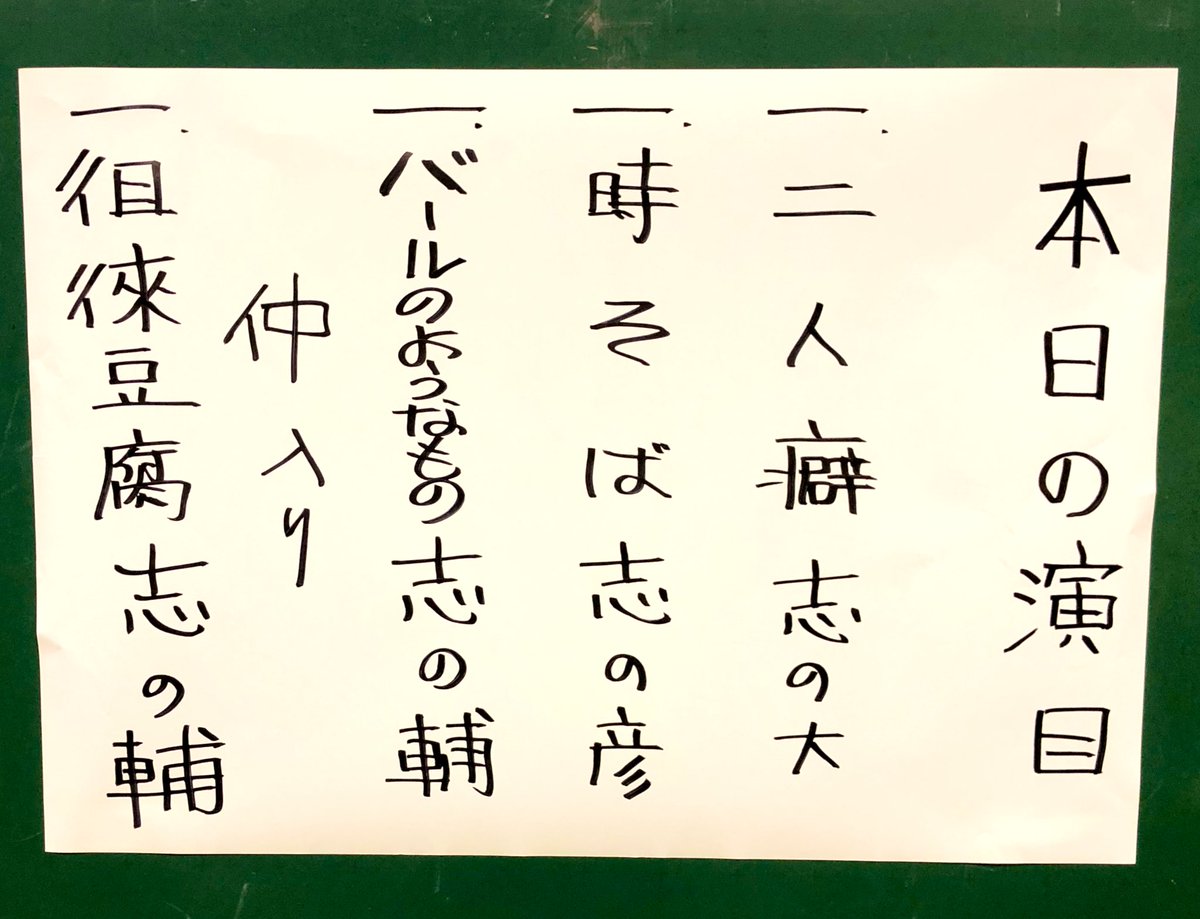 本日の演目
一.二人癖 志の大
一.時そば 志の彦
一.バールのようなもの 志の輔
仲入り
一.徂徠豆腐 志の輔